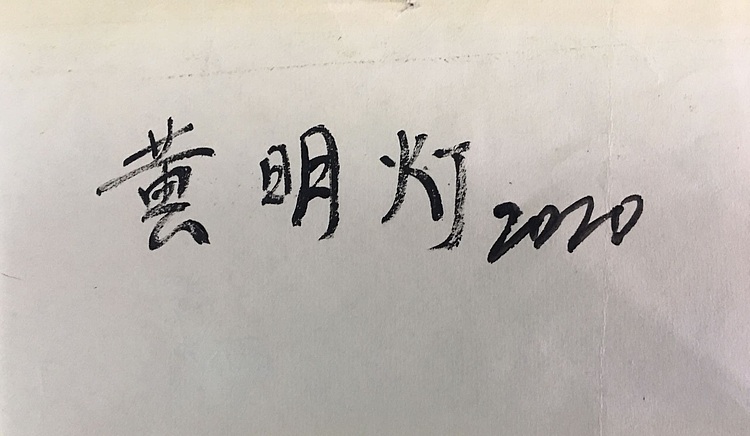 黄明灯 2020